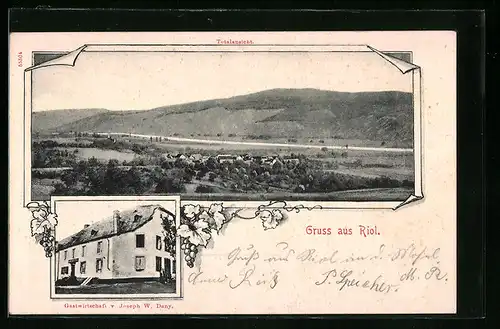 Totalansicht.
55504
Gruss aus Riol.
Gruß aus Riol an d. Mosel
P. Speicher
Gastwirtschaft v Joseph W. Dany.